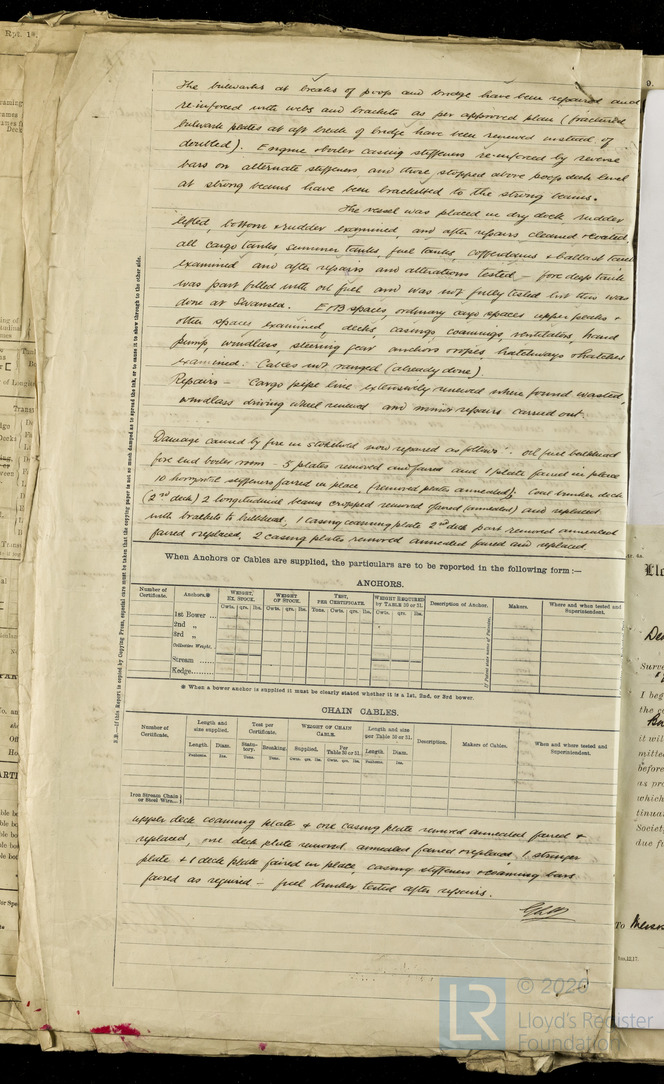 Rpt. 1*.
9.
The bulwarks at breaks of poop and bridge have been repaired and
re-inforced with webs and brackets as per approved plan (fractured
bulwark plates at aft break of bridge have been renewed instead of
doubled). Engine & boiler casing stiffeners re-inforced by reverse
bars on alternate stiffeners and those stopped above poop deck level
at strong beams have been bracketed to the strong beams.
The vessel was placed in dry dock rudder
lifted, bottom & rudder examined, and after repairs cleaned & coated,
all cargo tanks, summer tanks, fuel tanks, cofferdams & ballast tanks
examined and after repairs and alterations tested – fore deep tank
was part filled with oil fuel and was not fully tested but this was
done at Swansea. E & B spaces, ordinary cargo spaces upper peaks &
other spaces examined, decks, casings, coamings, ventilators, hand
pump, windlass steering gear anchors & ropes, hatchways & hatches
examined: Cables not ranged (already done)
Repairs – Cargo pipe line extensively renewed where found wasted,
windlass driving wheel renewed and minor repairs carried out.
Damage caused by fire in stokehold now repaired as follows:- oil fuel bulkhead
fore end boiler room – 5 plates removed and faired and 1 plate faired in place
10 horizontal stiffeners faired in place, (removed plates annealed); Coal bunker deck
(2nd deck) 2 longitudinal beams cropped removed faired (annealed) and replaced
with brackets to bulkhead, 1 casing coaming plate 2nd deck part removed annealed
faired & replaced, 2 casing plates removed annealed faired and replaced
When Anchors or Cables are supplied, the particulars are to be reported in the following form :—
ANCHORS.
Number of Certificate. Anchors.* WEIGHT, EX. STOCK. WEIGHT OF STOCK. TEST, PER CERTIFICATE. WEIGHT REQUIRED BY TABLE 30 or 31. Description of Anchor. Makers. Where and when tested and Superintendent.
Cwts. qrs. lbs. Cwts. qrs. lbs. Tons. Cwts. qrs. lbs. Cwts. qrs. lbs.
1st Bower ...
2nd „
3rd „
Collective Weight.
Stream ......
Kedge.........
* When a bower anchor is supplied it must be clearly stated whether it is a 1st, 2nd, or 3rd bower.
CHAIN CABLES.
Number of Certificate. Length and size supplied. Test per Certificate. WEIGHT OF CHAIN CABLE. Length and size per Table 30 or 31. Description. Makers of Cables. When and where tested and Superintendent.
Length. Diam. Statutory. Breaking. Supplied. Per Table 30 or 31. Length. Diam.
Fathoms. Ins. Tons. Tons. Cwts. qrs. lbs. Cwts. qrs. lbs. Fathoms. Ins.
Iron Stream Chain or Steel Wire...
upper deck coaming plate & one casing plate removed annealed faired &
replaced, one deck plate removed annealed faired & replaced, 1 stringer
plate & 1 deck plate faired in place, casing stiffeners & coaming bars
faired as required – fuel bunker tested after repairs.
N.B.—If this Report is copied by Copying Press, especial care must be taken that the copying paper is not so much damped as to spread the ink, or to cause it to show through to the other side.
Surve
I beg
it wil
mitte
before
as pro
which
tinua
Society,
due f
To Messrs
© 2020
LR
Lloyd's Register
Foundation